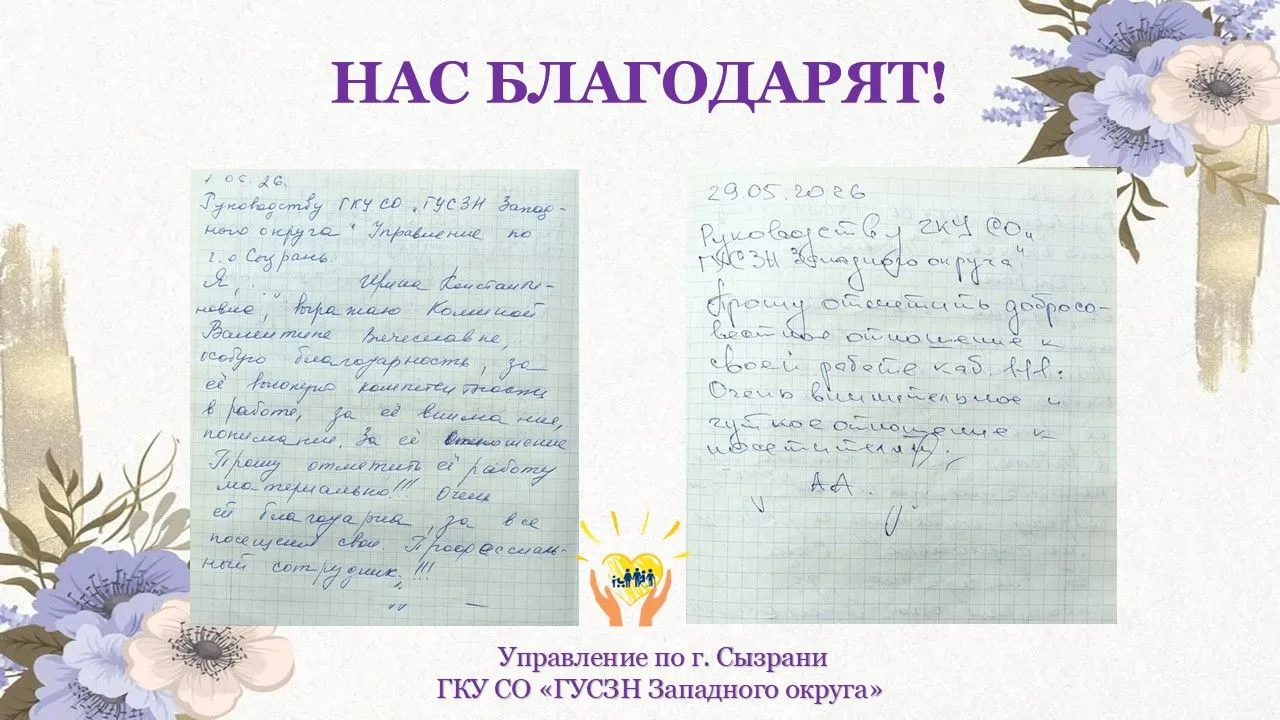 НАС БЛАГОДАРЯТ!
1.06.26.
Руководству ГКУ СО „ГУСЗН Запад-
ного округа" Управление по
г.о Сызрань.
Я, Ирина Константи-
новна, выражаю Колиной
Валентине Вячеславне,
особую благодарность, за
её высокую компетентность
в работе, за её внимание,
понимание. За её отношение
Прошу отметить её работу
материально!!! Очень
ей благодарна, за все
посещения свои. Профессиональ-
ный сотрудник. !!!
29.05.2026
Руководству ГКУ СО „
ГУСЗН Западного округа"
Прошу отметить добросо-
вестное отношение к
своей работе каб.
Очень внимательное и
чуткое отношение к
посетителям.
АА.
Управление по г. Сызрани
ГКУ СО «ГУСЗН Западного округа»